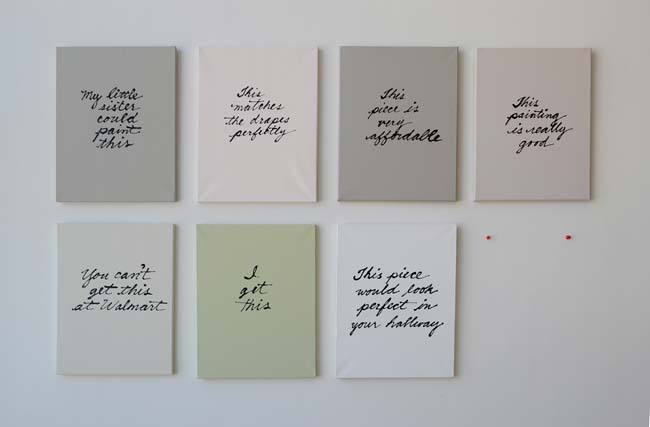 My little
sister
could
paint
this
This
matches
the drapes
perfectly
This
piece is
very
affordable
This
painting
is really
good
You can't
get this
at Walmart
I
get
this
This piece
would look
perfect in
your hallway